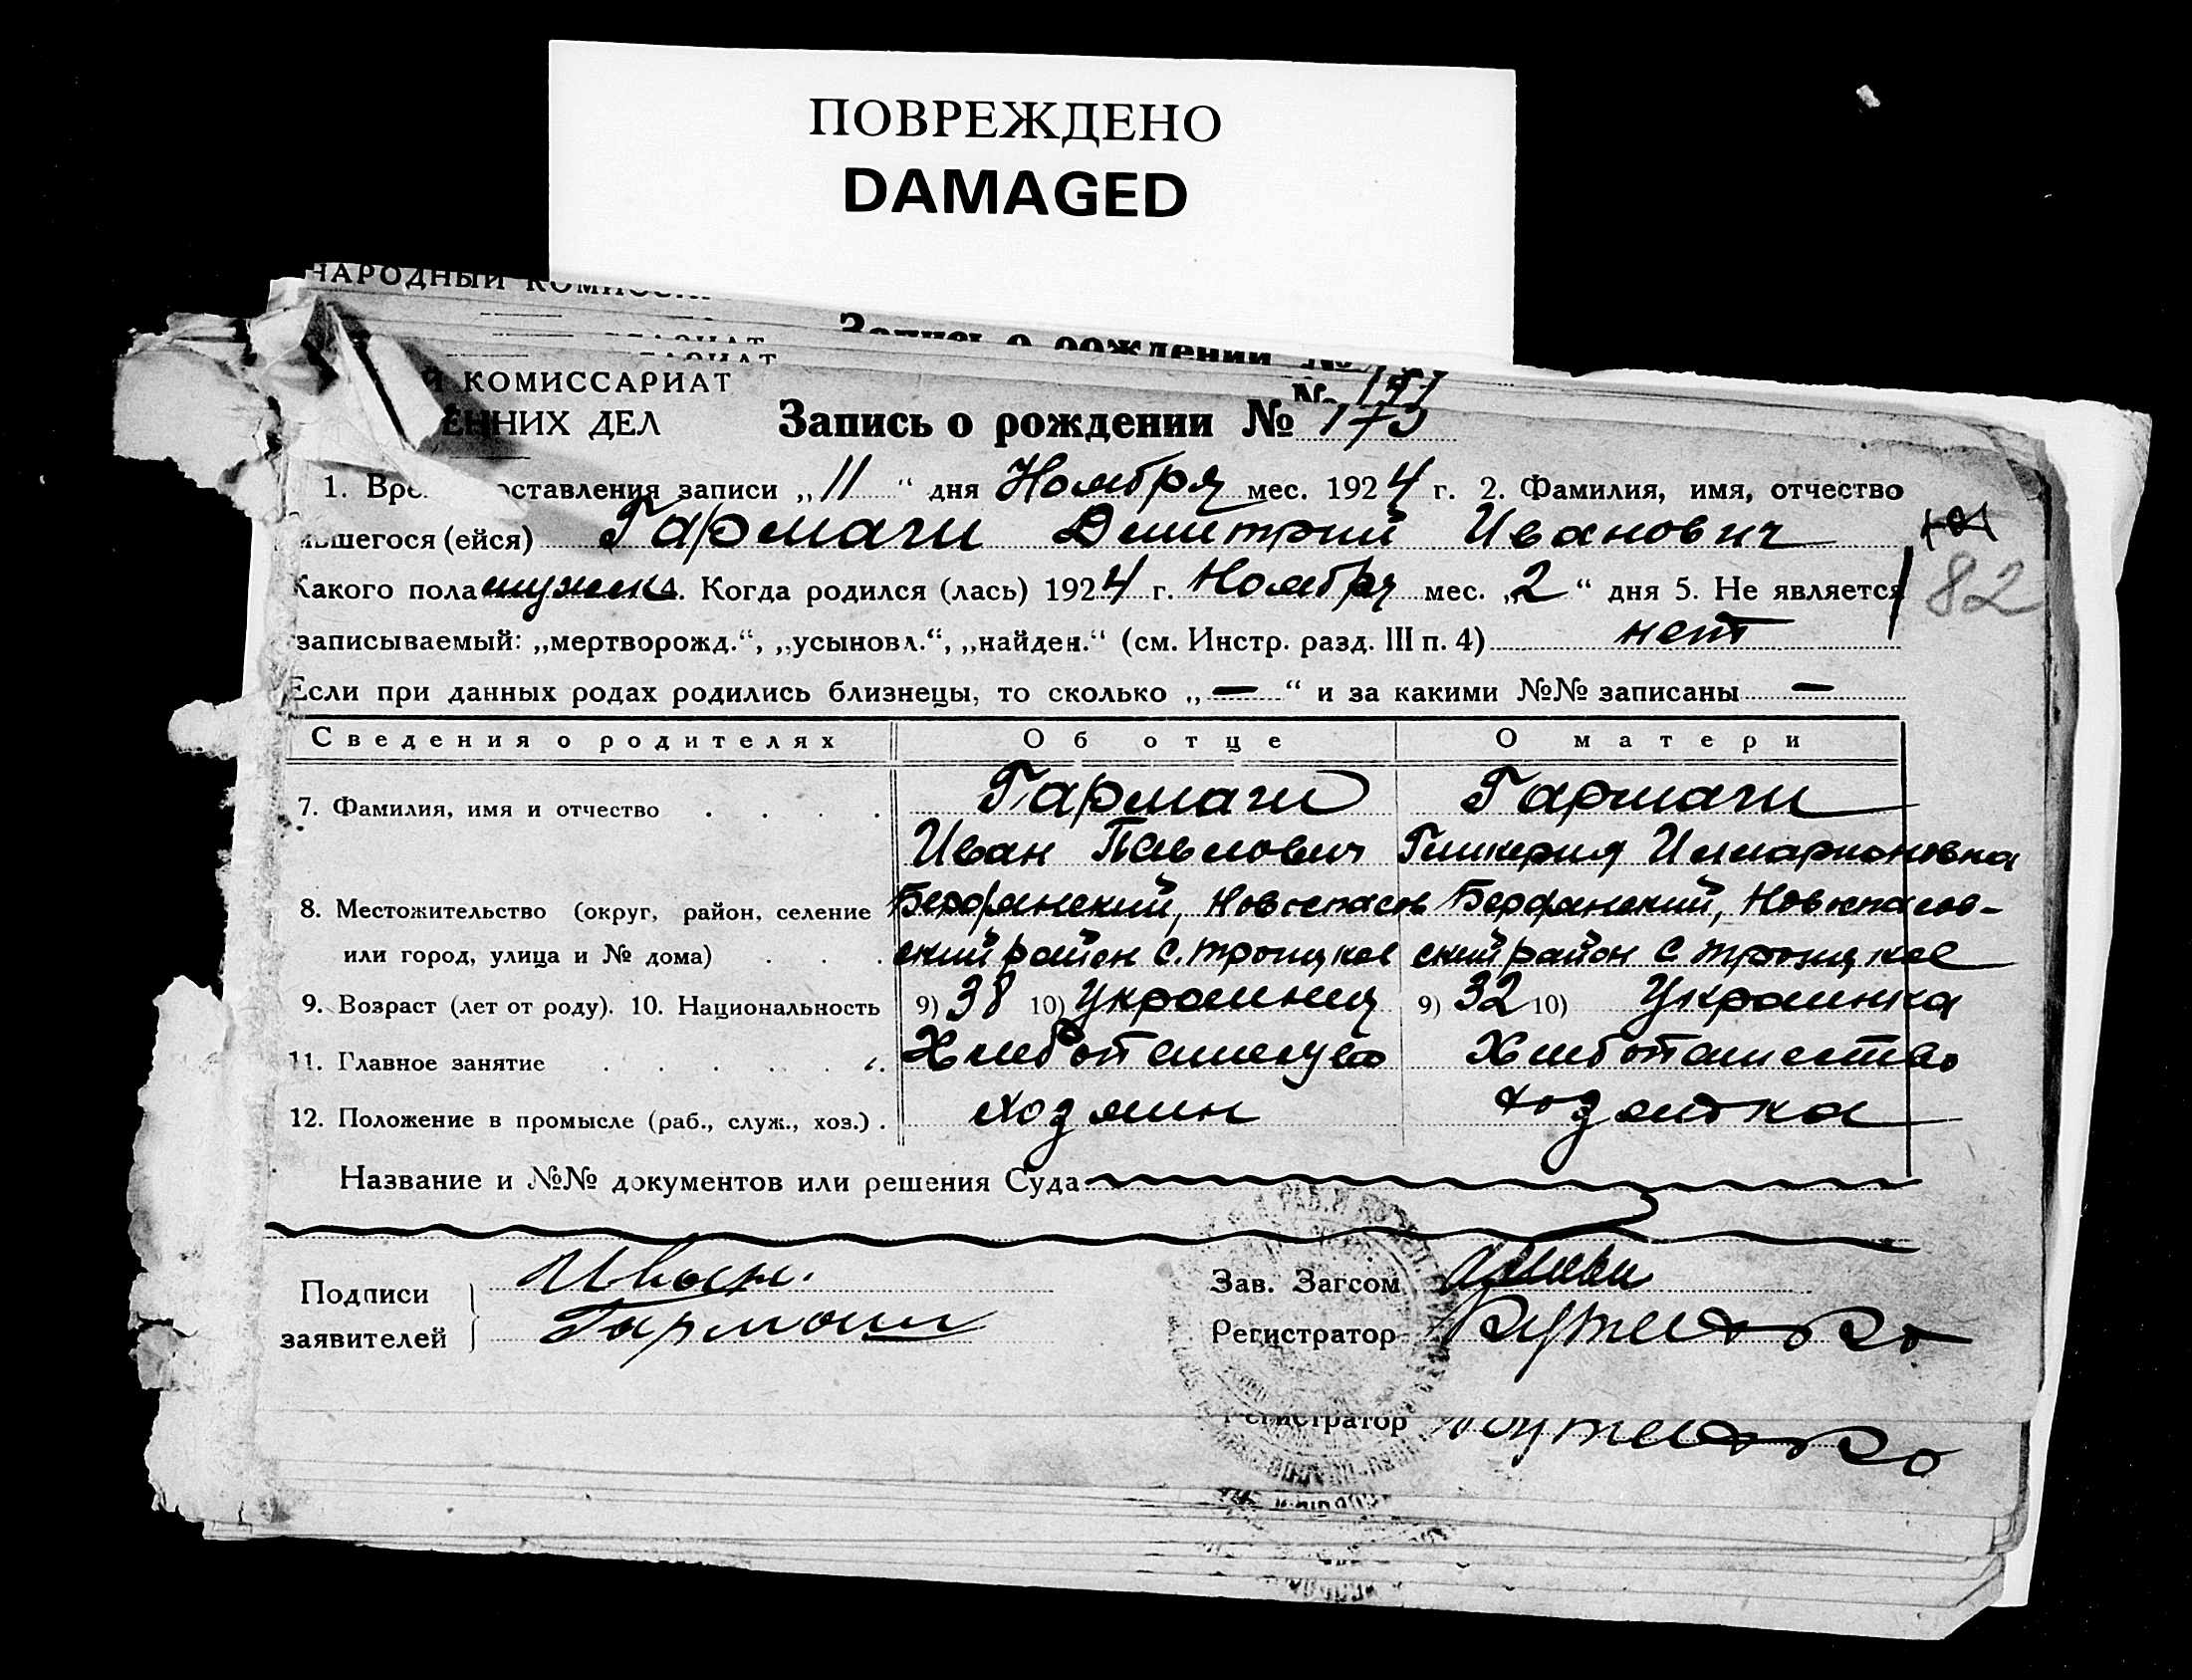 ПОВРЕЖДЕНО
DAMAGED
НАРОДНЫЙ
Запись о рождении №
Й КОМИССАРИАТ
ЕННИХ ДЕЛ
Запись о рождении № 173
1. Вре оставления записи „11“ дня Ноября мес. 1924 г. 2. Фамилия, имя, отчество
вшегося (ейся) Гармаги Дмитрий Иванович
Какого пола мужск. Когда родился (лась) 1924 г. Ноября мес. „2“ дня 5. Не является
82
записываемый: „мертворожд.“, „усыновл.“, „найден.“ (см. Инстр. разд. III п. 4) нет
Если при данных родах родились близнецы, то сколько „—“ и за какими №№ записаны —
Сведения о родителях Об отце О матери
7. Фамилия, имя и отчество Гармаги Гармаги
Иван Павлович Гликерия Илларионовна
8. Местожительство (округ, район, селение Бердянский, Новоспасов Бердянский, Новоспасов-
или город, улица и № дома) ский район с. Троицкое ский район с Троицкое
9. Возраст (лет от роду). 10. Национальность 9) 38 10) Украинец 9) 32 10) Украинка
11. Главное занятие Хлебопашество
12. Положение в промысле (раб., служ., хоз.) хозяин хозяйка
Название и №№ документов или решения Суда
Подписи заявителей Иван
Гармаги
Зав. Загсом
Регистратор
Регистратор